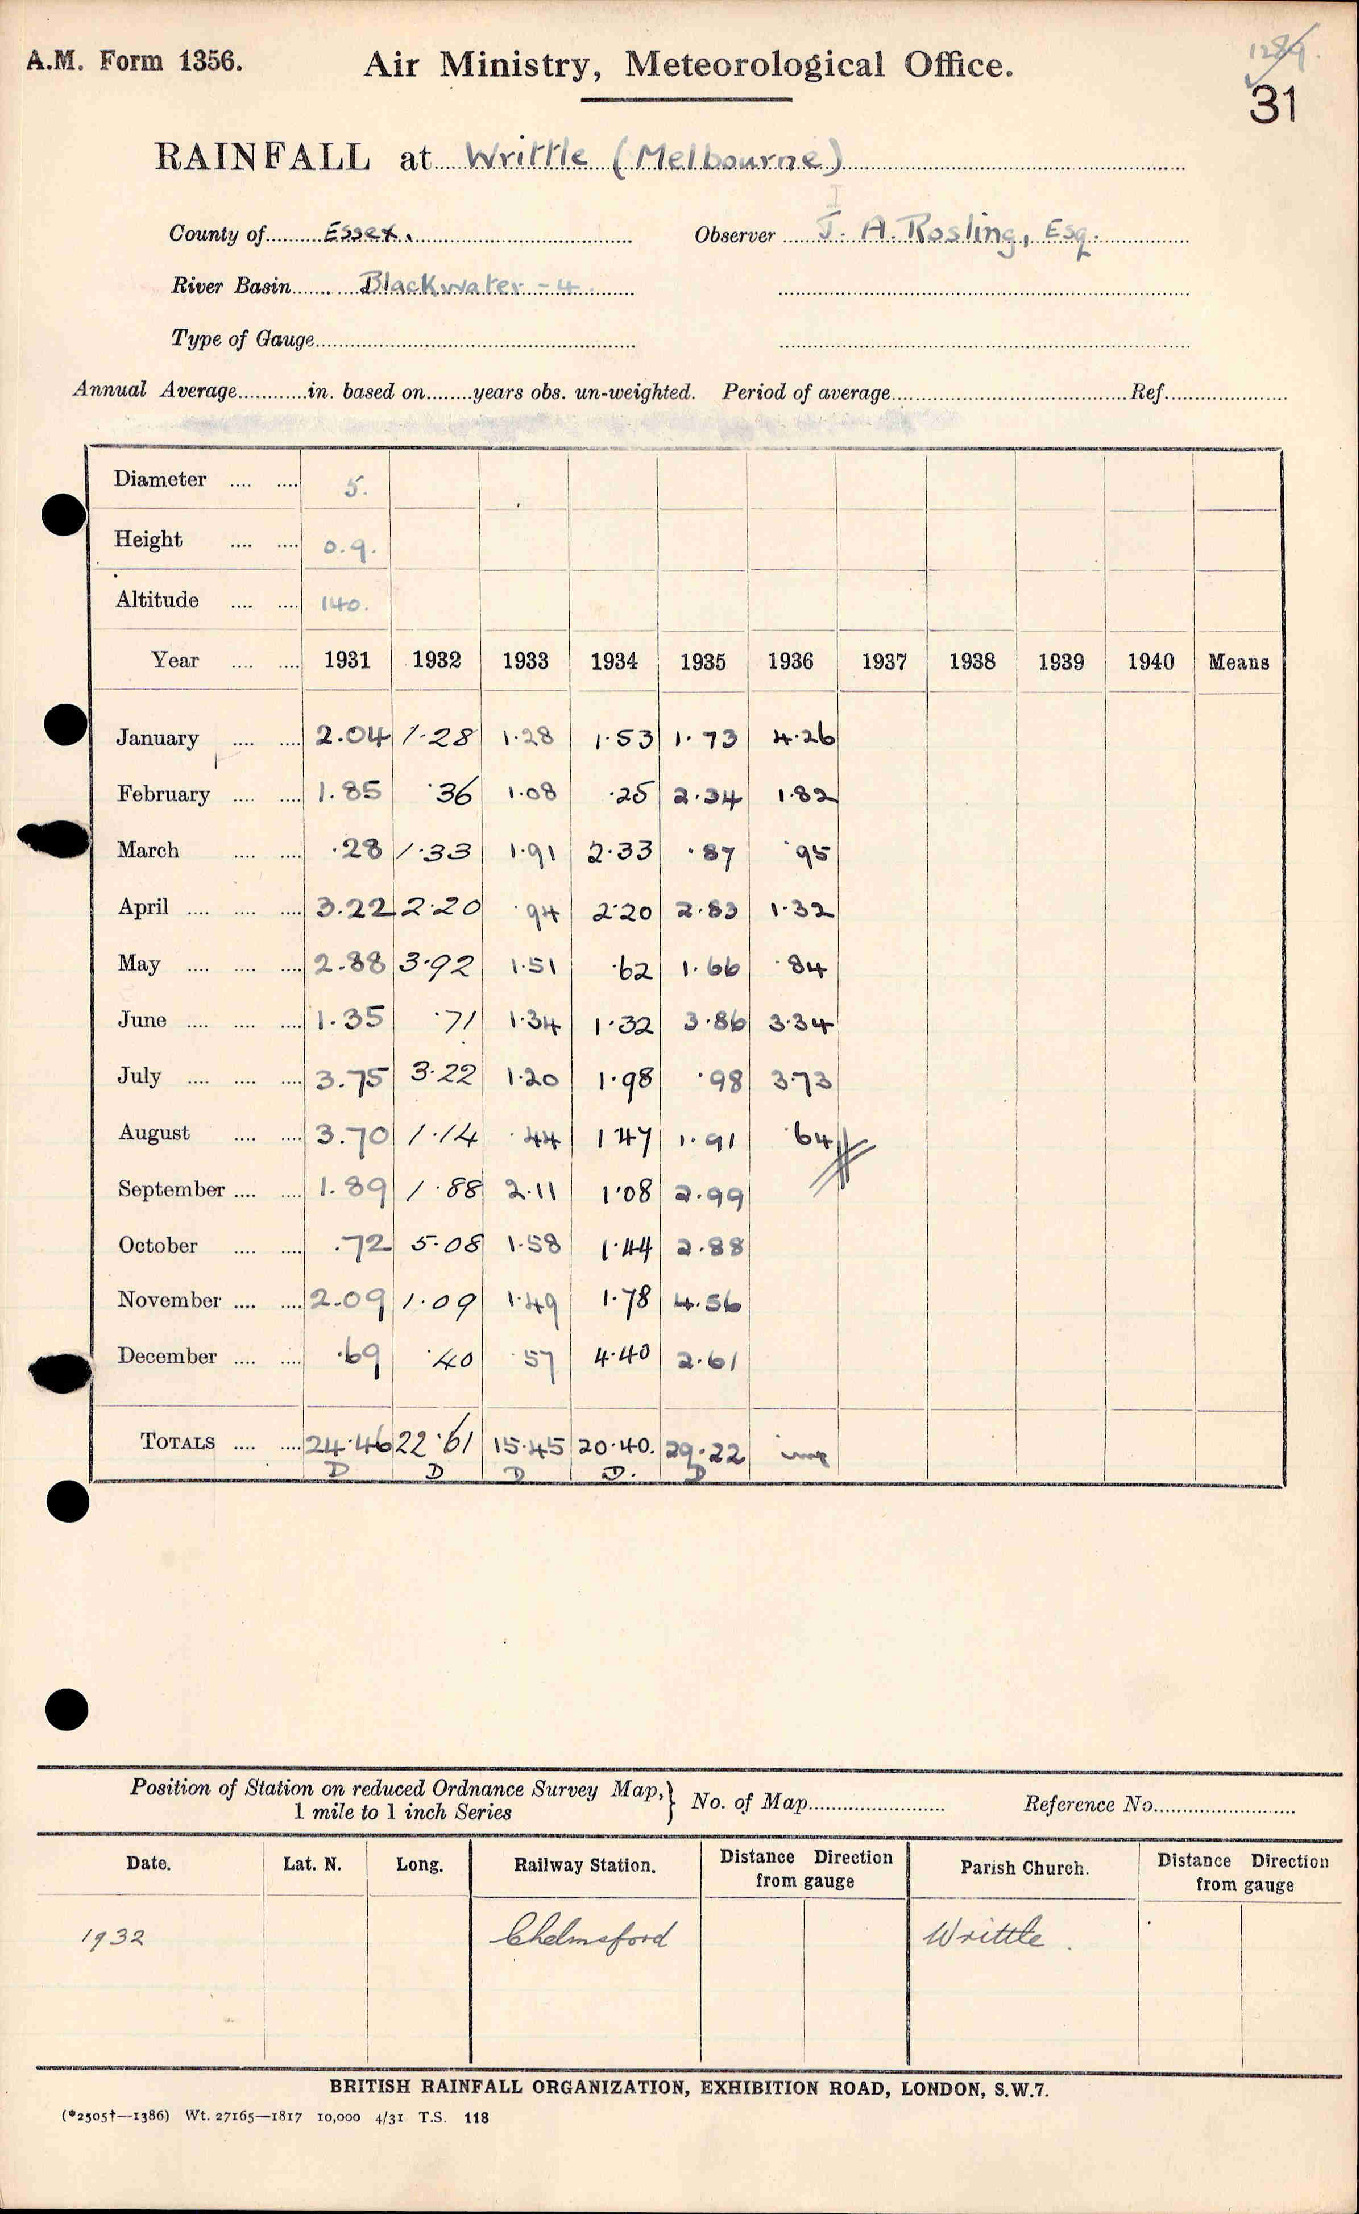 A.M. Form 1356. Air Ministry, Meteorological Office. 1289.
31
RAINFALL at Writtle (Melbourne)
County of Essex. Observer J. A. Rosling, Esq.
River Basin Blackwater - 4.
Type of Gauge
Annual Average in. based on years obs. un-weighted. Period of average Ref.
Diameter 5.
Height 0.9.
Altitude 140.
Year 1931 1932 1933 1934 1935 1936 1937 1938 1939 1940 Means
January 2.04 1.28 1.28 1.53 1.73 4.26
February 1.85 .36 1.08 .25 2.34 1.82
March .28 1.33 1.91 2.33 .87 .95
April 3.22 2.20 .94 2.20 2.83 1.32
May 2.88 3.92 1.51 .62 1.66 .84
June 1.35 .71 1.34 1.32 3.86 3.34
July 3.75 3.22 1.20 1.98 .98 3.73
August 3.70 1.14 .44 1.47 1.91 .64
September 1.89 1.88 2.11 1.08 2.99
October .72 5.08 1.58 1.44 2.88
November 2.09 1.09 1.49 1.78 4.56
December .69 .40 .57 4.40 2.61
TOTALS 24.46 22.61 15.45 20.40. 29.22
D D D D. D
Position of Station on reduced Ordnance Survey Map,} No. of Map Reference No.
1 mile to 1 inch Series
Date. Lat. N. Long. Railway Station. Distance Direction from gauge Parish Church. Distance Direction from gauge
1932 Chelmsford Writtle.
BRITISH RAINFALL ORGANIZATION, EXHIBITION ROAD, LONDON, S.W.7.
(*2505†—1386) Wt. 27165—1817 10,000 4/31 T.S. 118